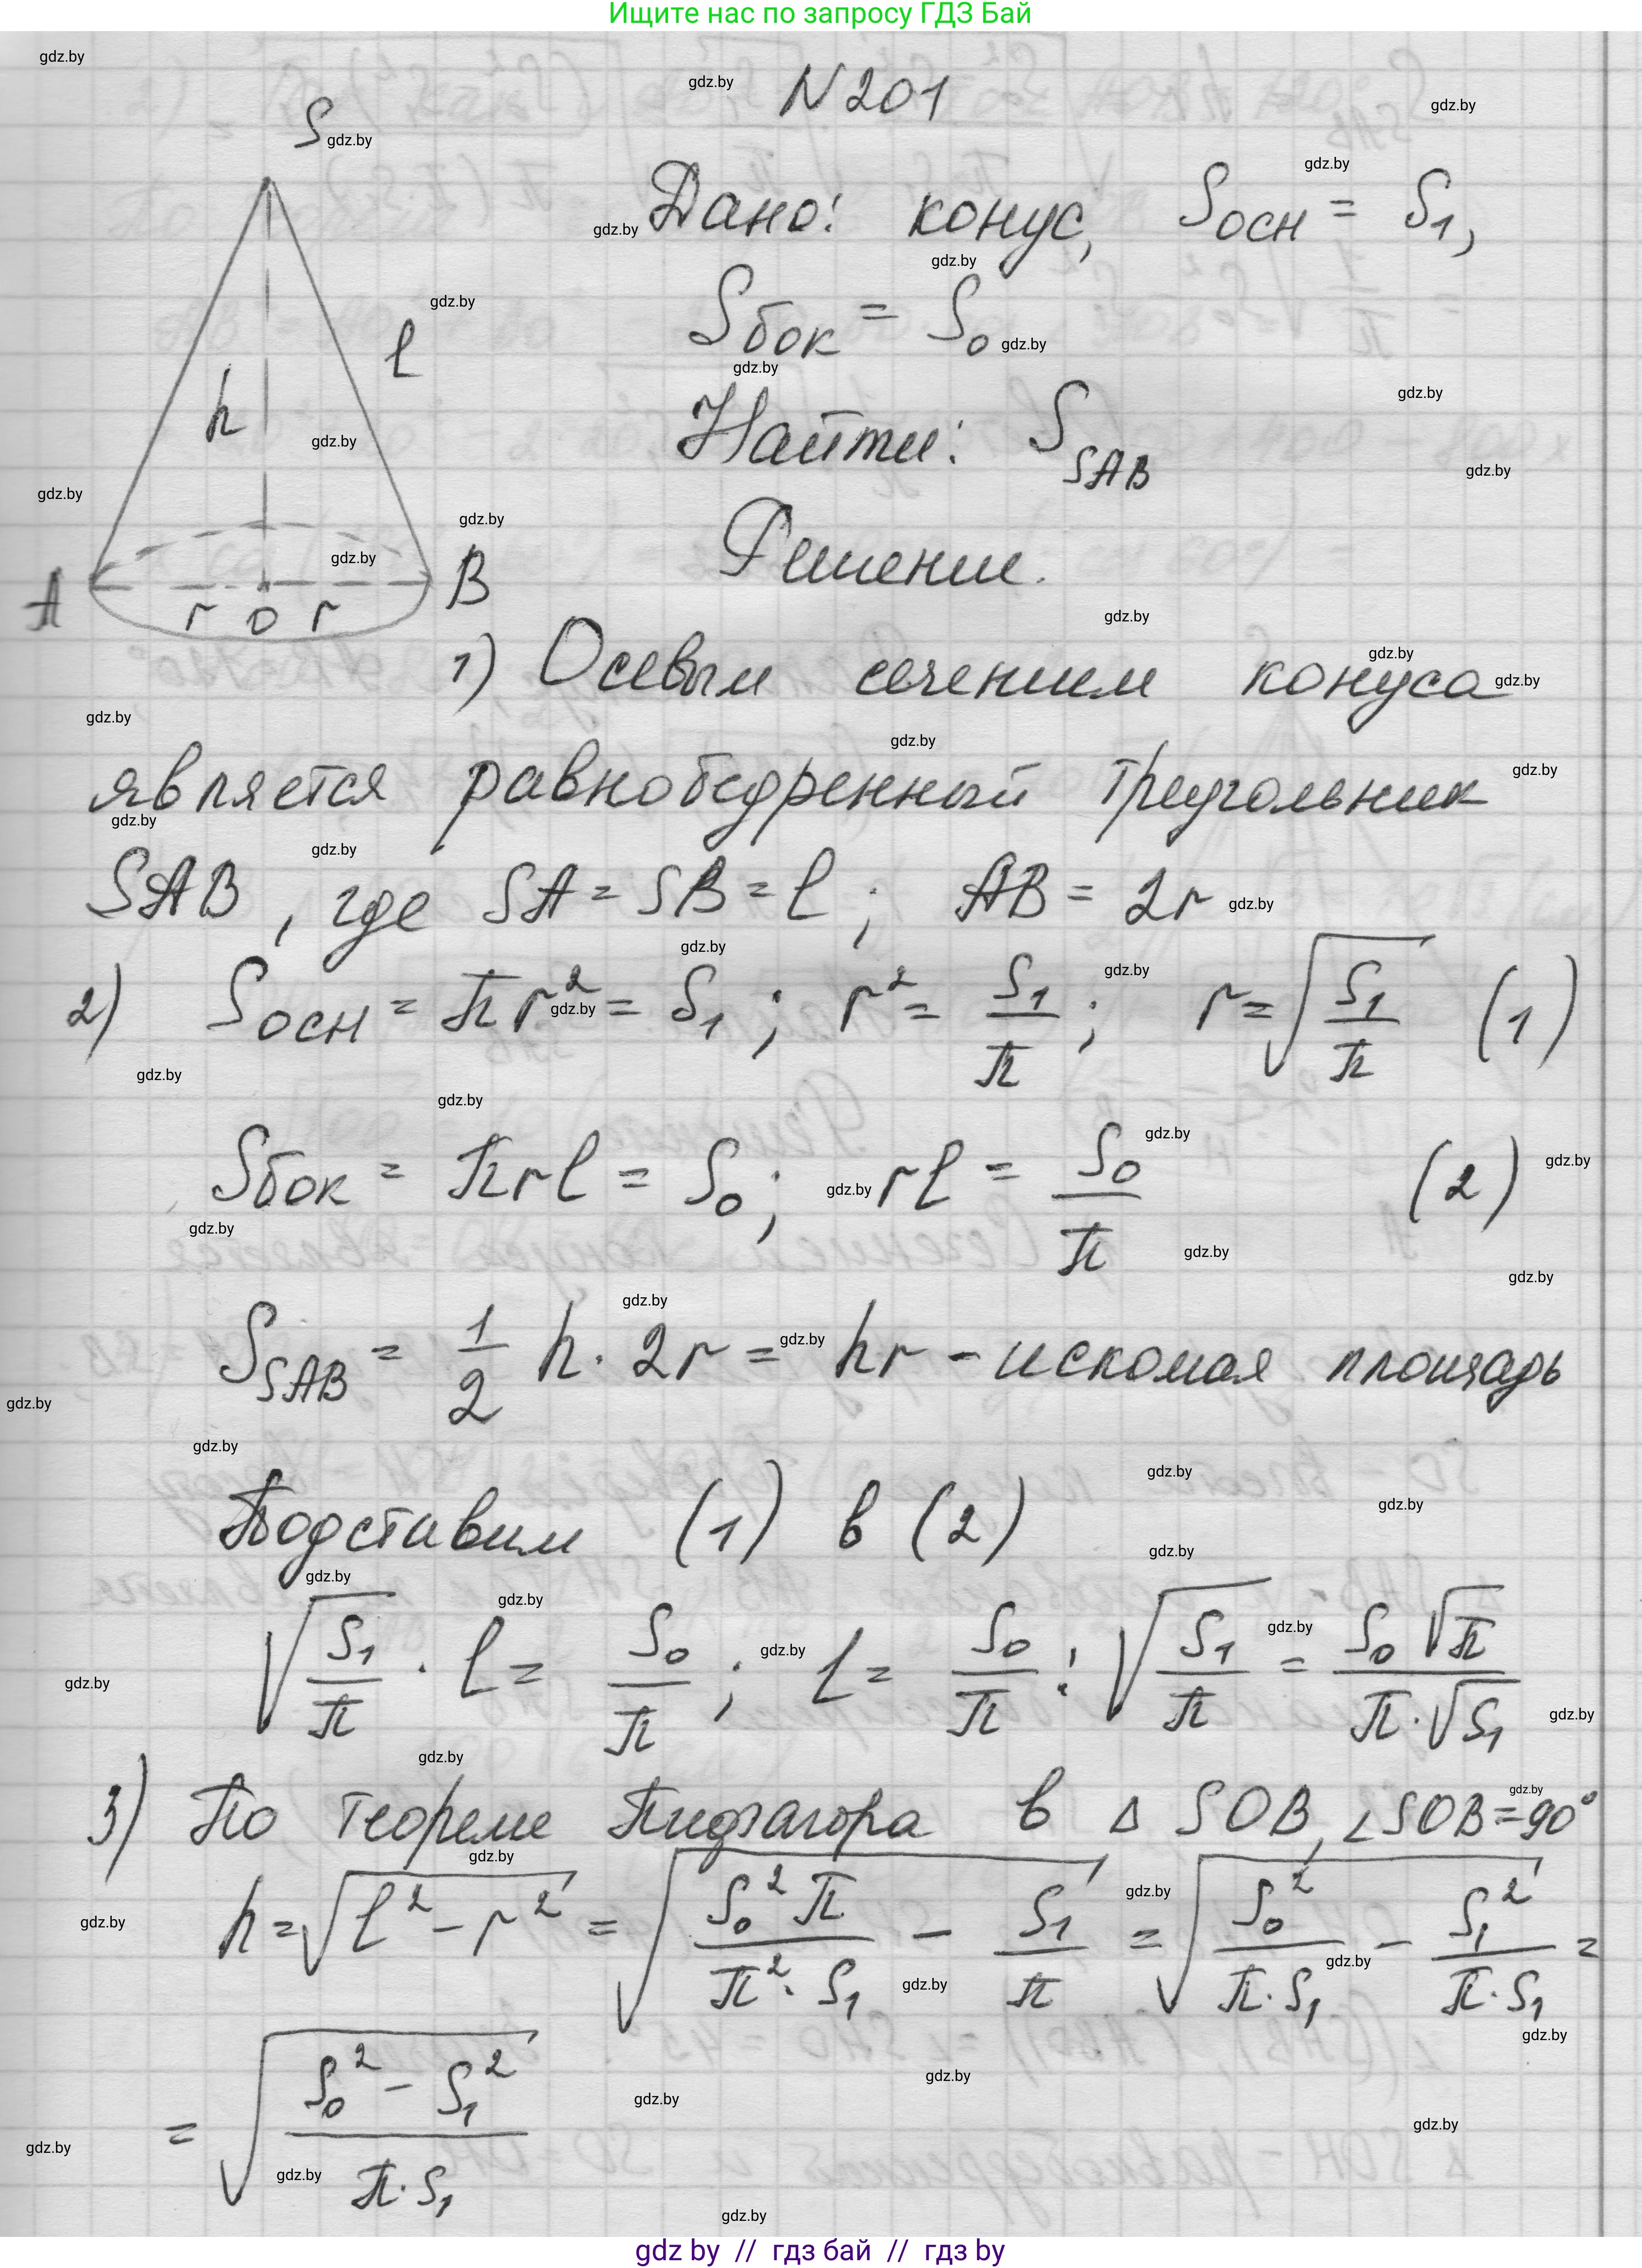 Ищите нас по запросу ГДЗ Бай
N 201
S
Дано: конус, Sосн = S₁,
Sбок = S₀
l
h
Найти: S_SAB
Решение.
A r O r B
1) Осевым сечением конуса
является равнобедренный треугольник
SAB, где SA = SB = l; AB = 2r
2) Sосн = πr² = S₁; r² = S₁/π; r = √(S₁/π) (1)
Sбок = πrl = S₀; rl = S₀/π (2)
S_SAB = 1/2 h · 2r = hr - искомая площадь
Подставим (1) в (2)
√(S₁/π) · l = S₀/π; l = S₀/π : √(S₁/π) = S₀√π/(π·√S₁)
3) По теореме Пифагора в Δ SOB, ∠SOB = 90°
h = √(l² - r²) = √(S₀²π/(π²·S₁) - S₁/π) = √(S₀²/(π·S₁) - S₁²/(π·S₁)) =
= √((S₀² - S₁²)/(π·S₁))
gdz by // гдз бай // гдз by